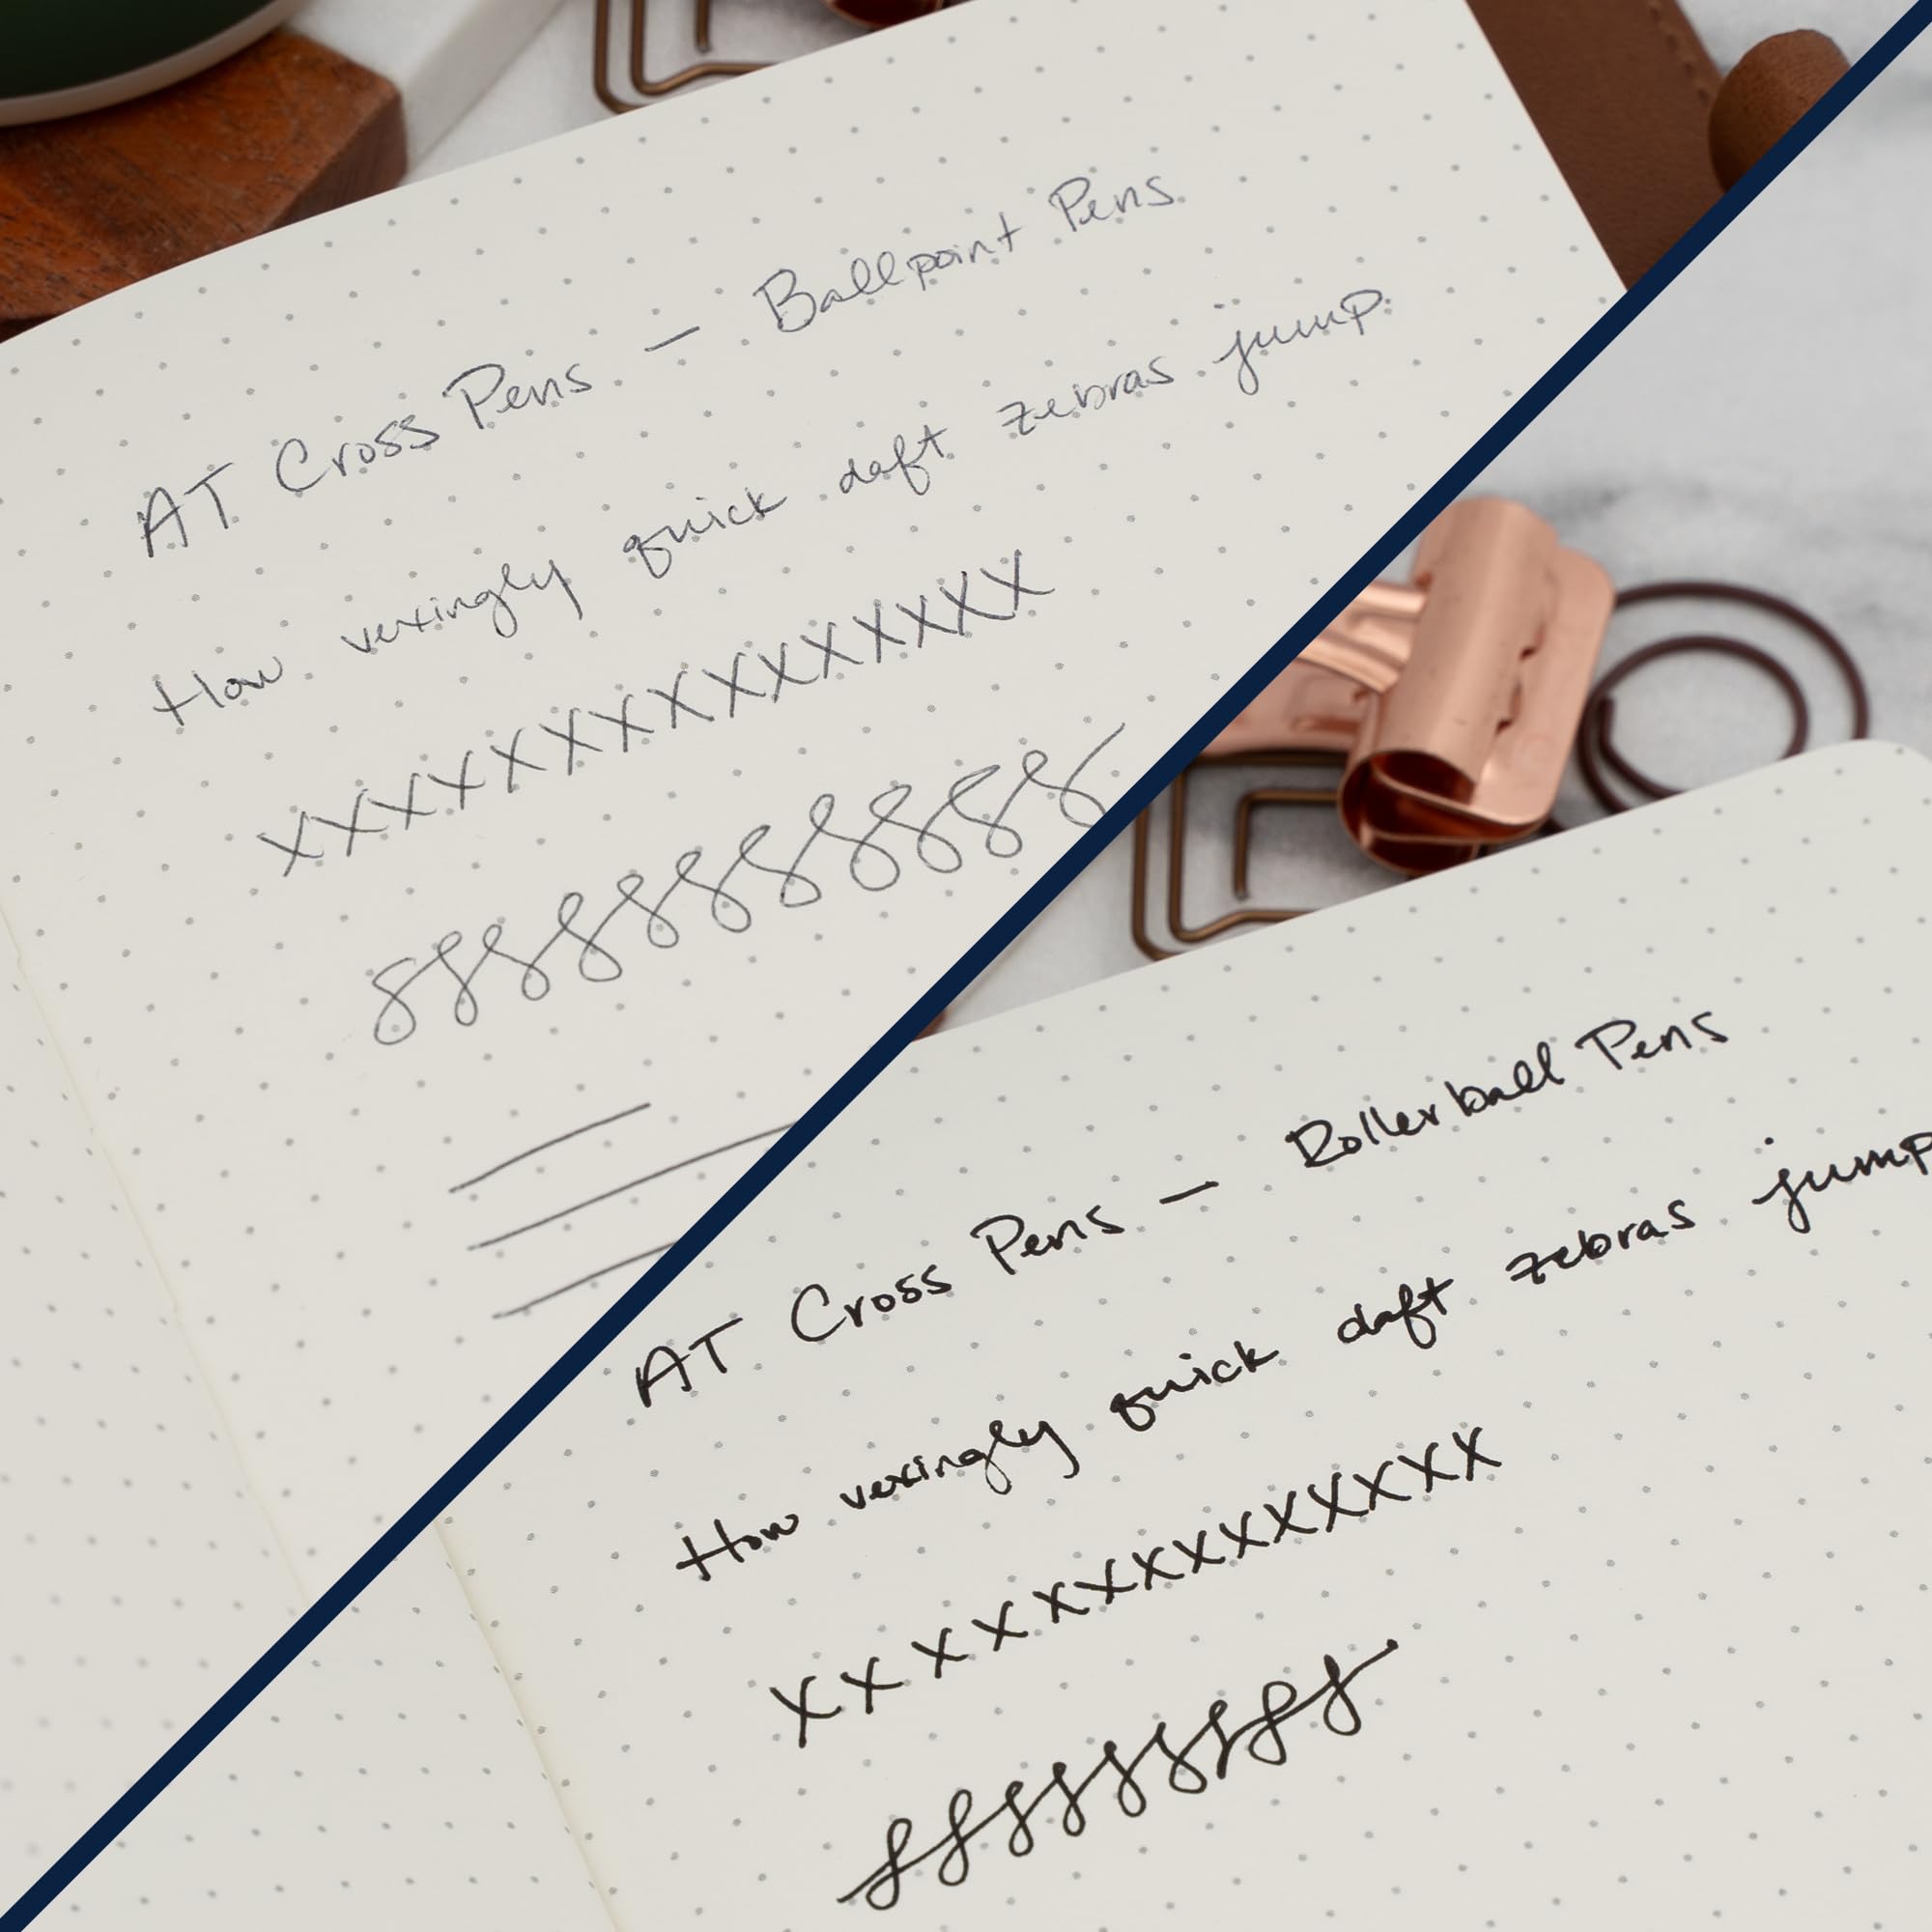 AT Cross Pens — Ballpoint Pens
How vexingly quick daft zebras jump
XXXXXXXXXXXXXX
AT Cross Pens — Rollerball Pens
How vexingly quick daft zebras jump
XXXXXXXXXXXXXX